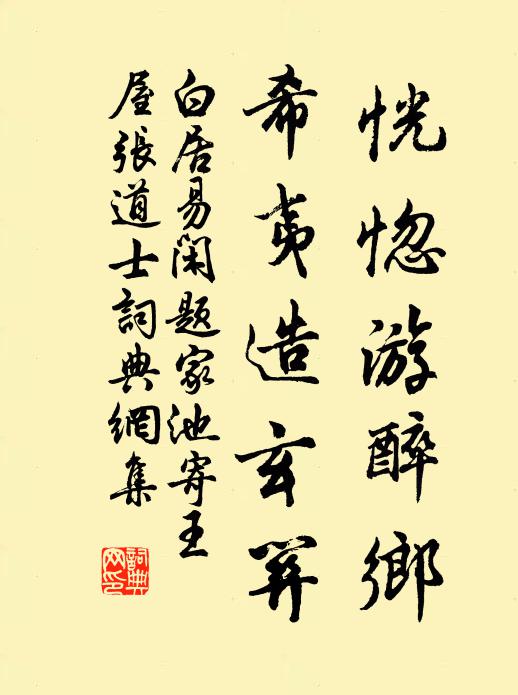 恍惚游醉鄉
希夷造玄關
白居易閑題家池寄王
屋張道士詞典網集
詞典
网印